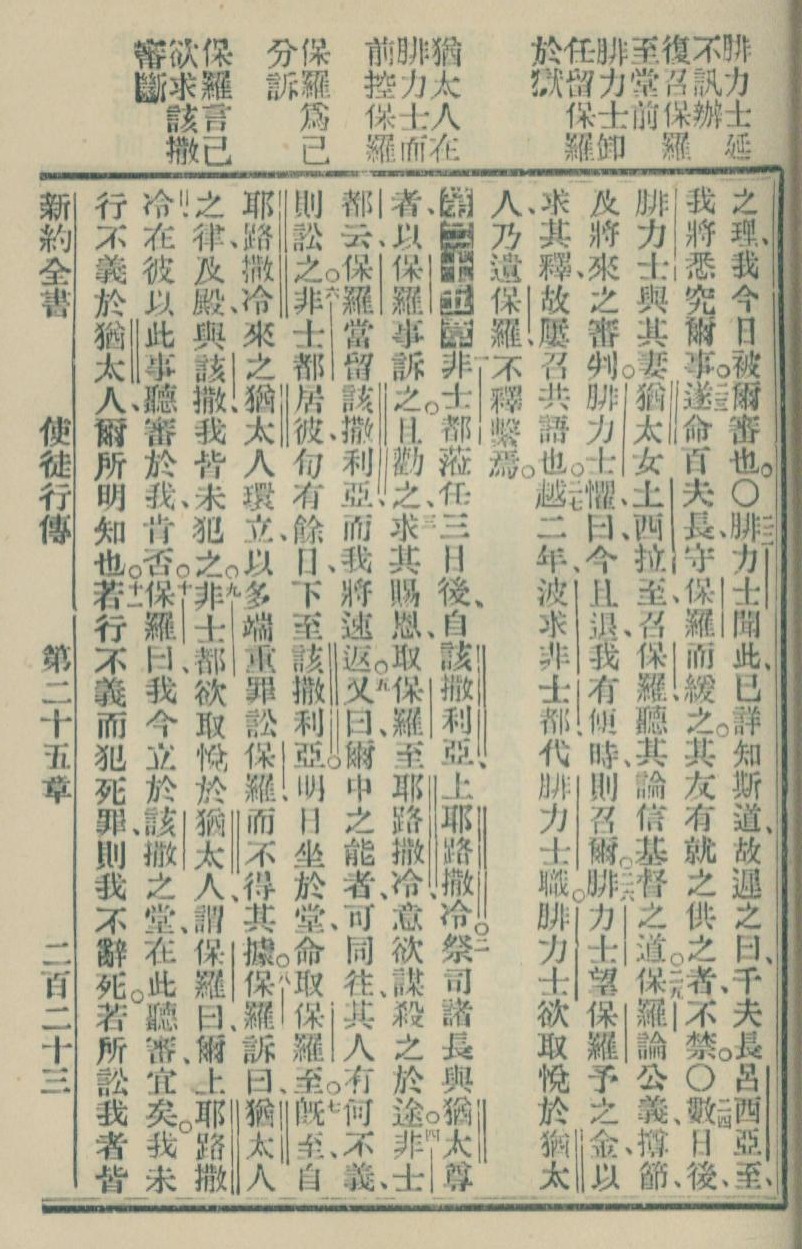 腓力士延
不訊辦
復召保羅
至堂前
腓力士卸
任留保羅
於獄
猶太人在
腓力士而
前控保羅
保羅爲己
分訴
保羅言己
欲求該撒
審斷
之理、我今日被爾審也。〇二二腓力士聞此、已詳知斯道、故遲之曰、千夫長呂西亞至、
我將悉究爾事。二三遂命百夫長、守保羅而緩之。其友有就之供之者、不禁。〇二四數日後、
腓力士與其妻猶太女土西拉至、召保羅、聽其論信基督之道。二五保羅論公義、撙節、
及將來之審判。腓力士懼、曰、今且退、我有便時、則召爾。二六腓力士望保羅予之金、以
求其釋、故屢召共語也。二七越二年、波求非士都代腓力士職。腓力士欲取悅於猶太
人、乃遺保羅、不釋繫焉。
第二十五章一非士都蒞任三日後、自該撒利亞、上耶路撒冷。二祭司諸長與猶太尊
者、以保羅事訴之。且勸之、三求其賜恩、取保羅至耶路撒冷、意欲謀殺之於途。四非士
都云、保羅當留該撒利亞、而我將速返。五又曰、爾中之能者、可同往、其人有何不義、
則訟之。六非士都居彼旬有餘日、下至該撒利亞。明日坐於堂、命取保羅至。七旣至、自
耶路撒冷來之猶太人環立、以多端重罪訟保羅、而不得其據。八保羅訴曰、猶太人
之律、及殿、與該撒、我皆未犯之。九非士都欲取悅於猶太人、謂保羅曰、爾上耶路撒
冷、在彼以此事聽審於我、肯否。十保羅曰、我今立於該撒之堂、在此聽審宜矣。我未
行不義於猶太人、爾所明知也。十一若行不義而犯死罪、則我不辭死。若所訟我者皆
新約全書 使徒行傳 第二十五章 二百二十三